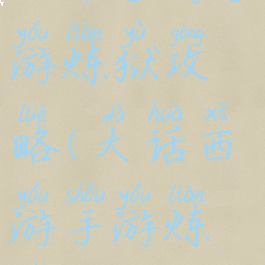 yóu liàn yù gōng
游炼狱攻
lüè dà huà xī
略(大话西
yóu shǒu yóu liàn
游手游炼